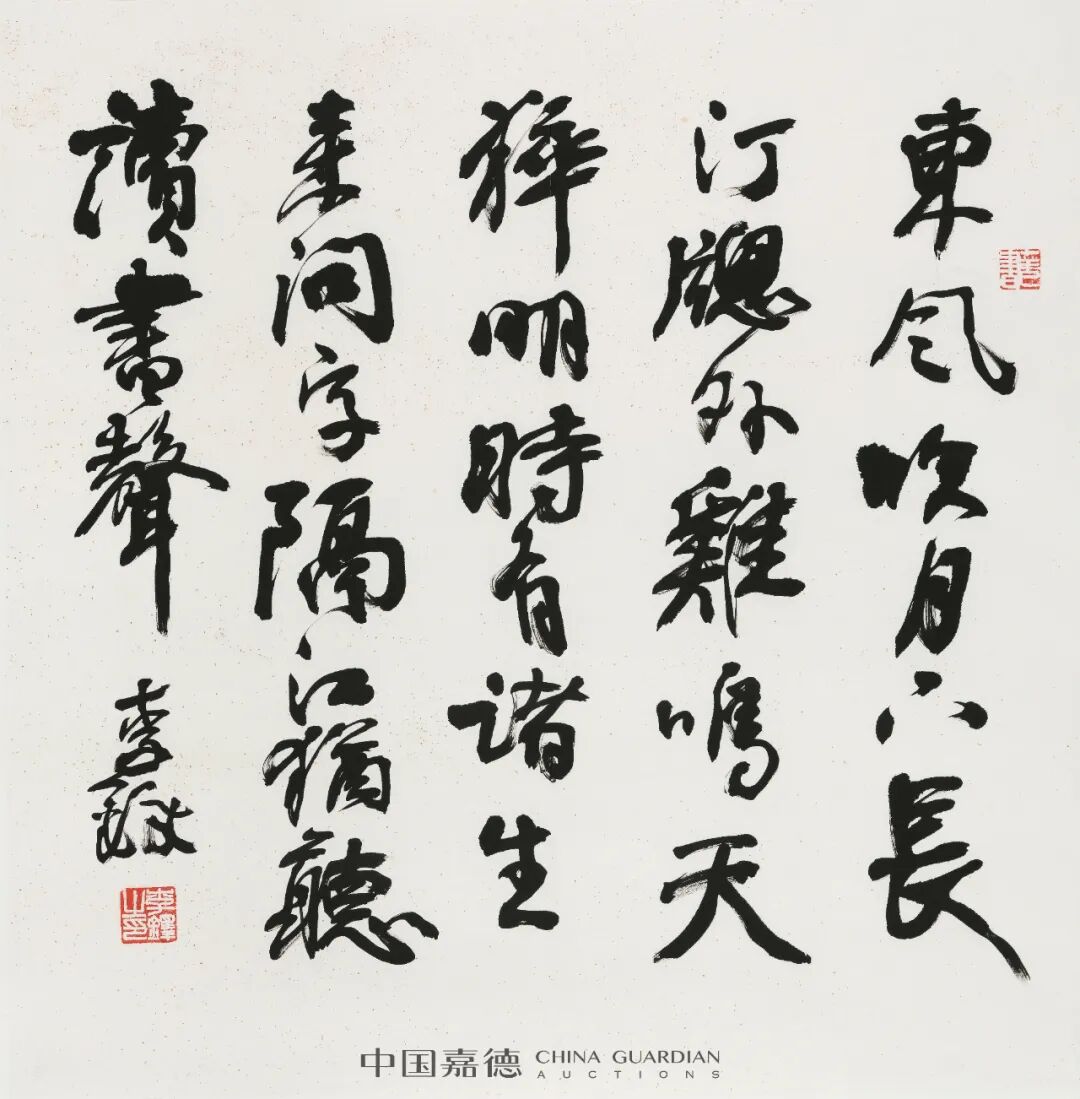 東風吹月下長
汀牕外雞鳴天
猝明時有諸生
來問字隔江猶聽
讀書聲
李鐸
李鐸之印
中国嘉德 CHINA GUARDIAN
AUCTIONS